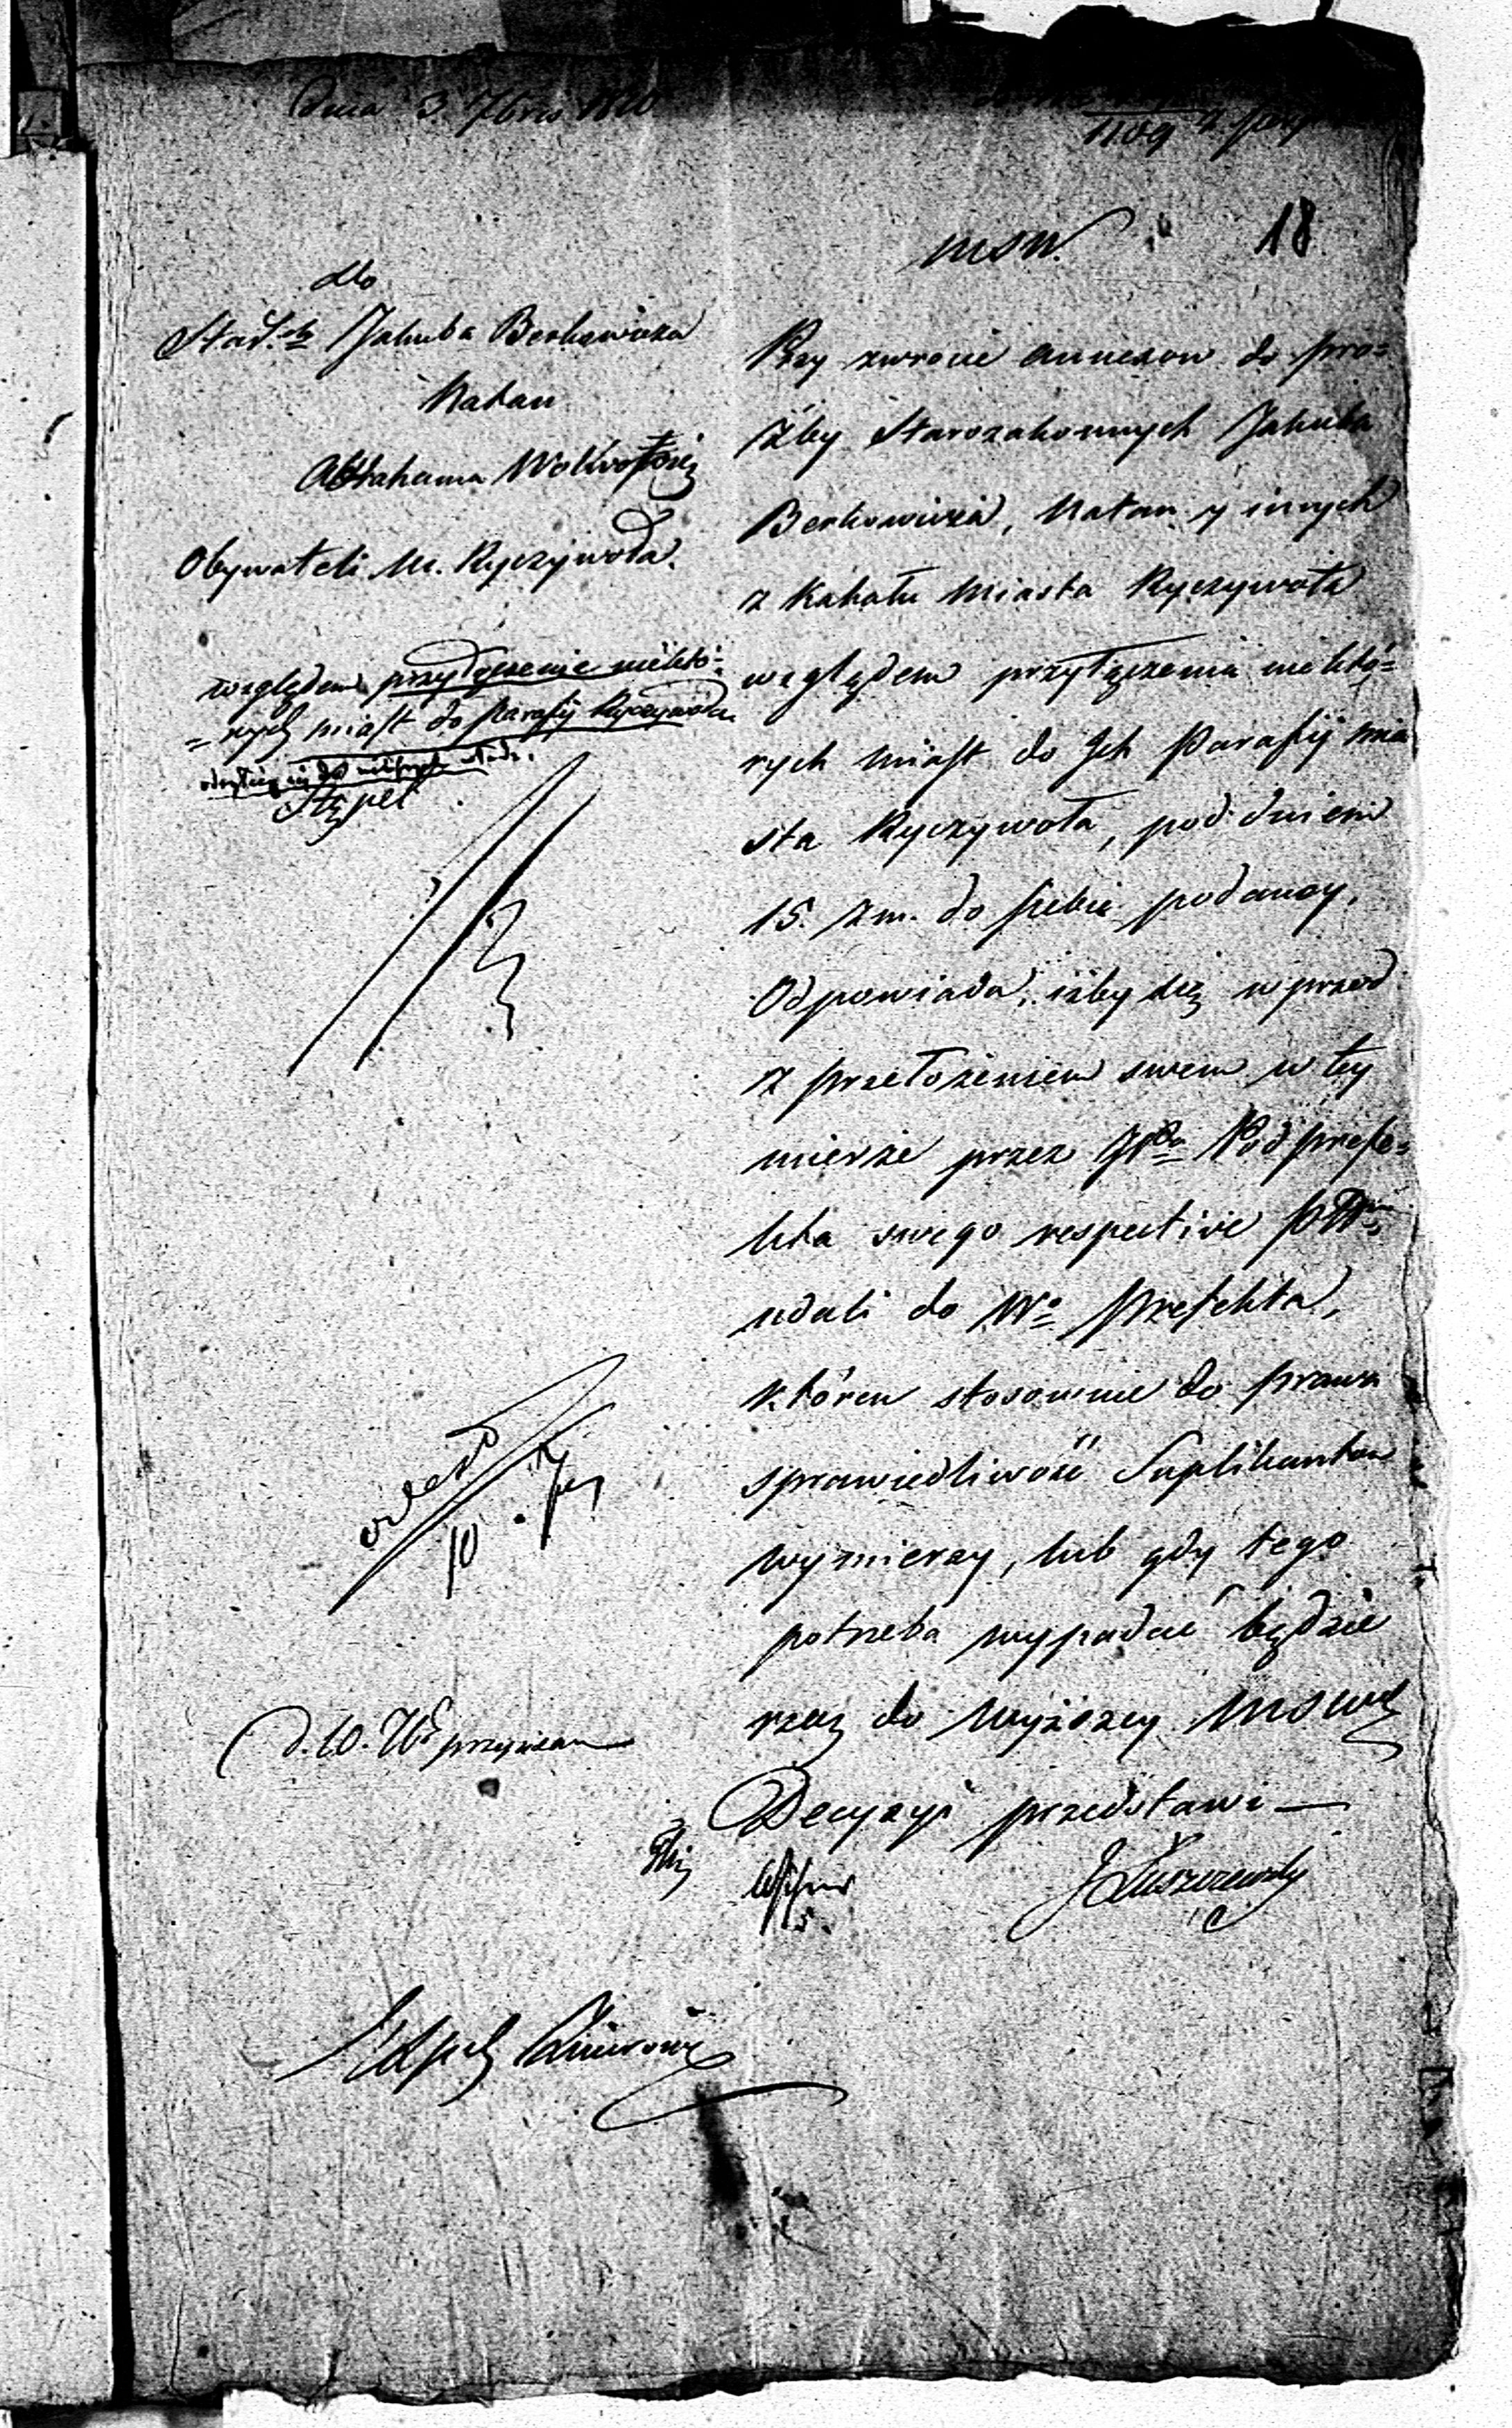 Dnia 3. 7bris 1810
1109
18
MSW.
do
Jakuba Berkowicza
Natan
Abrahama
Obywateli M. Ryczywoła.
względem przyłączenie niektó=
=rych miast do Parafij Ryczywoła
Przy zwrocie annexow do pro=
źby Starozakonnych Jakuba
Berkowicza, Natan y innych
z Kahału Miasta Ryczywoła
względem przyłączenia niektó=
rych miast do Ich Parafij mia
sta Ryczywoła, pod dniem
15. z m. do siebie podaney,
Odpowiada, iżby się wprzod
z przełożeniem swem w tey
mierze przez Podprefe=
kta swego respective
udali do Wo Prefekta,
ktoren stosownie do prawa
sprawiedliwość Suplikantom
wymierzy, lub gdy tego
potrzeba wypadać będzie
rzecz do wyższey MSW
Decyzyi przedstawi —
JŁuszczewski
odesł
10 . 7br